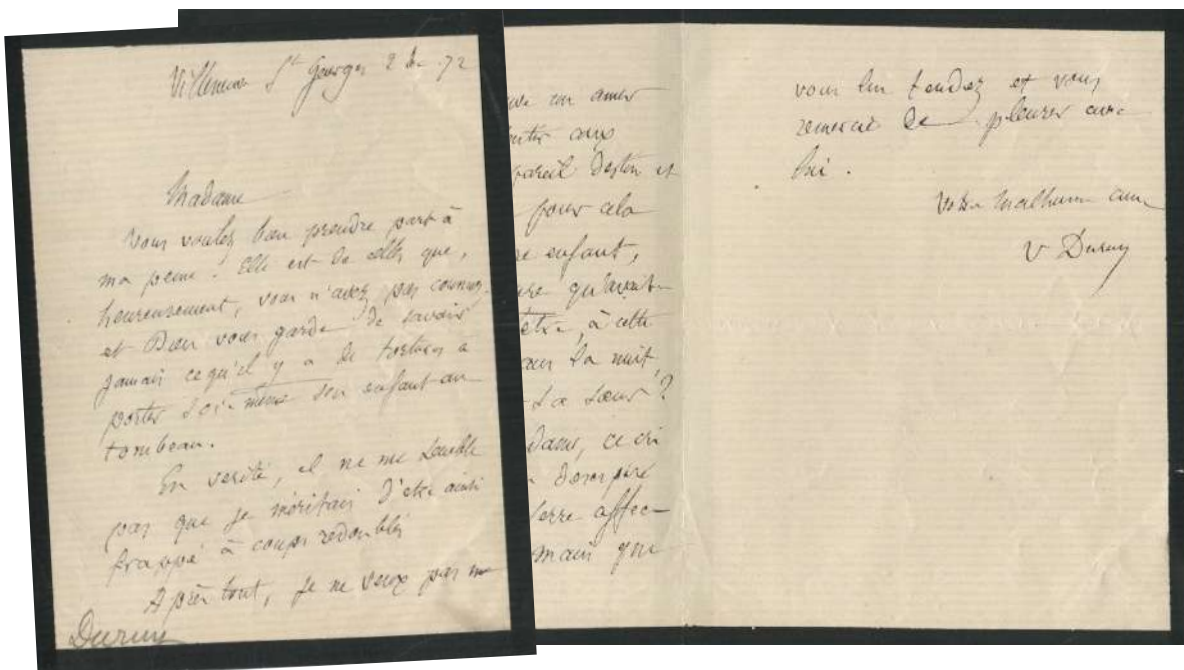 Villeneuve St Georges 2 72
Madame
Vous voulez bien prendre part à
ma peine. Elle est de celles que,
heureusement, vous n'avez pas connues
et Dieu vous garde de savoir
jamais ce qu'il y a de tortures à
porter soi-même son enfant au
tombeau.
En vérité, il ne me semble
pas que je méritais d'etre ainsi
frappé à coups redoublés
Après tout, je ne veux pas me
Duruy
un amer
aux
pareil destin et
pour cela
enfant,
qu'avait-
à cette
la nuit,
sa soeur?
ce cri
désespéré
serre affec-
main que
vous lui tendez et vous
remercie de pleurer avec
lui.
Votre malheureux ami
V Duruy